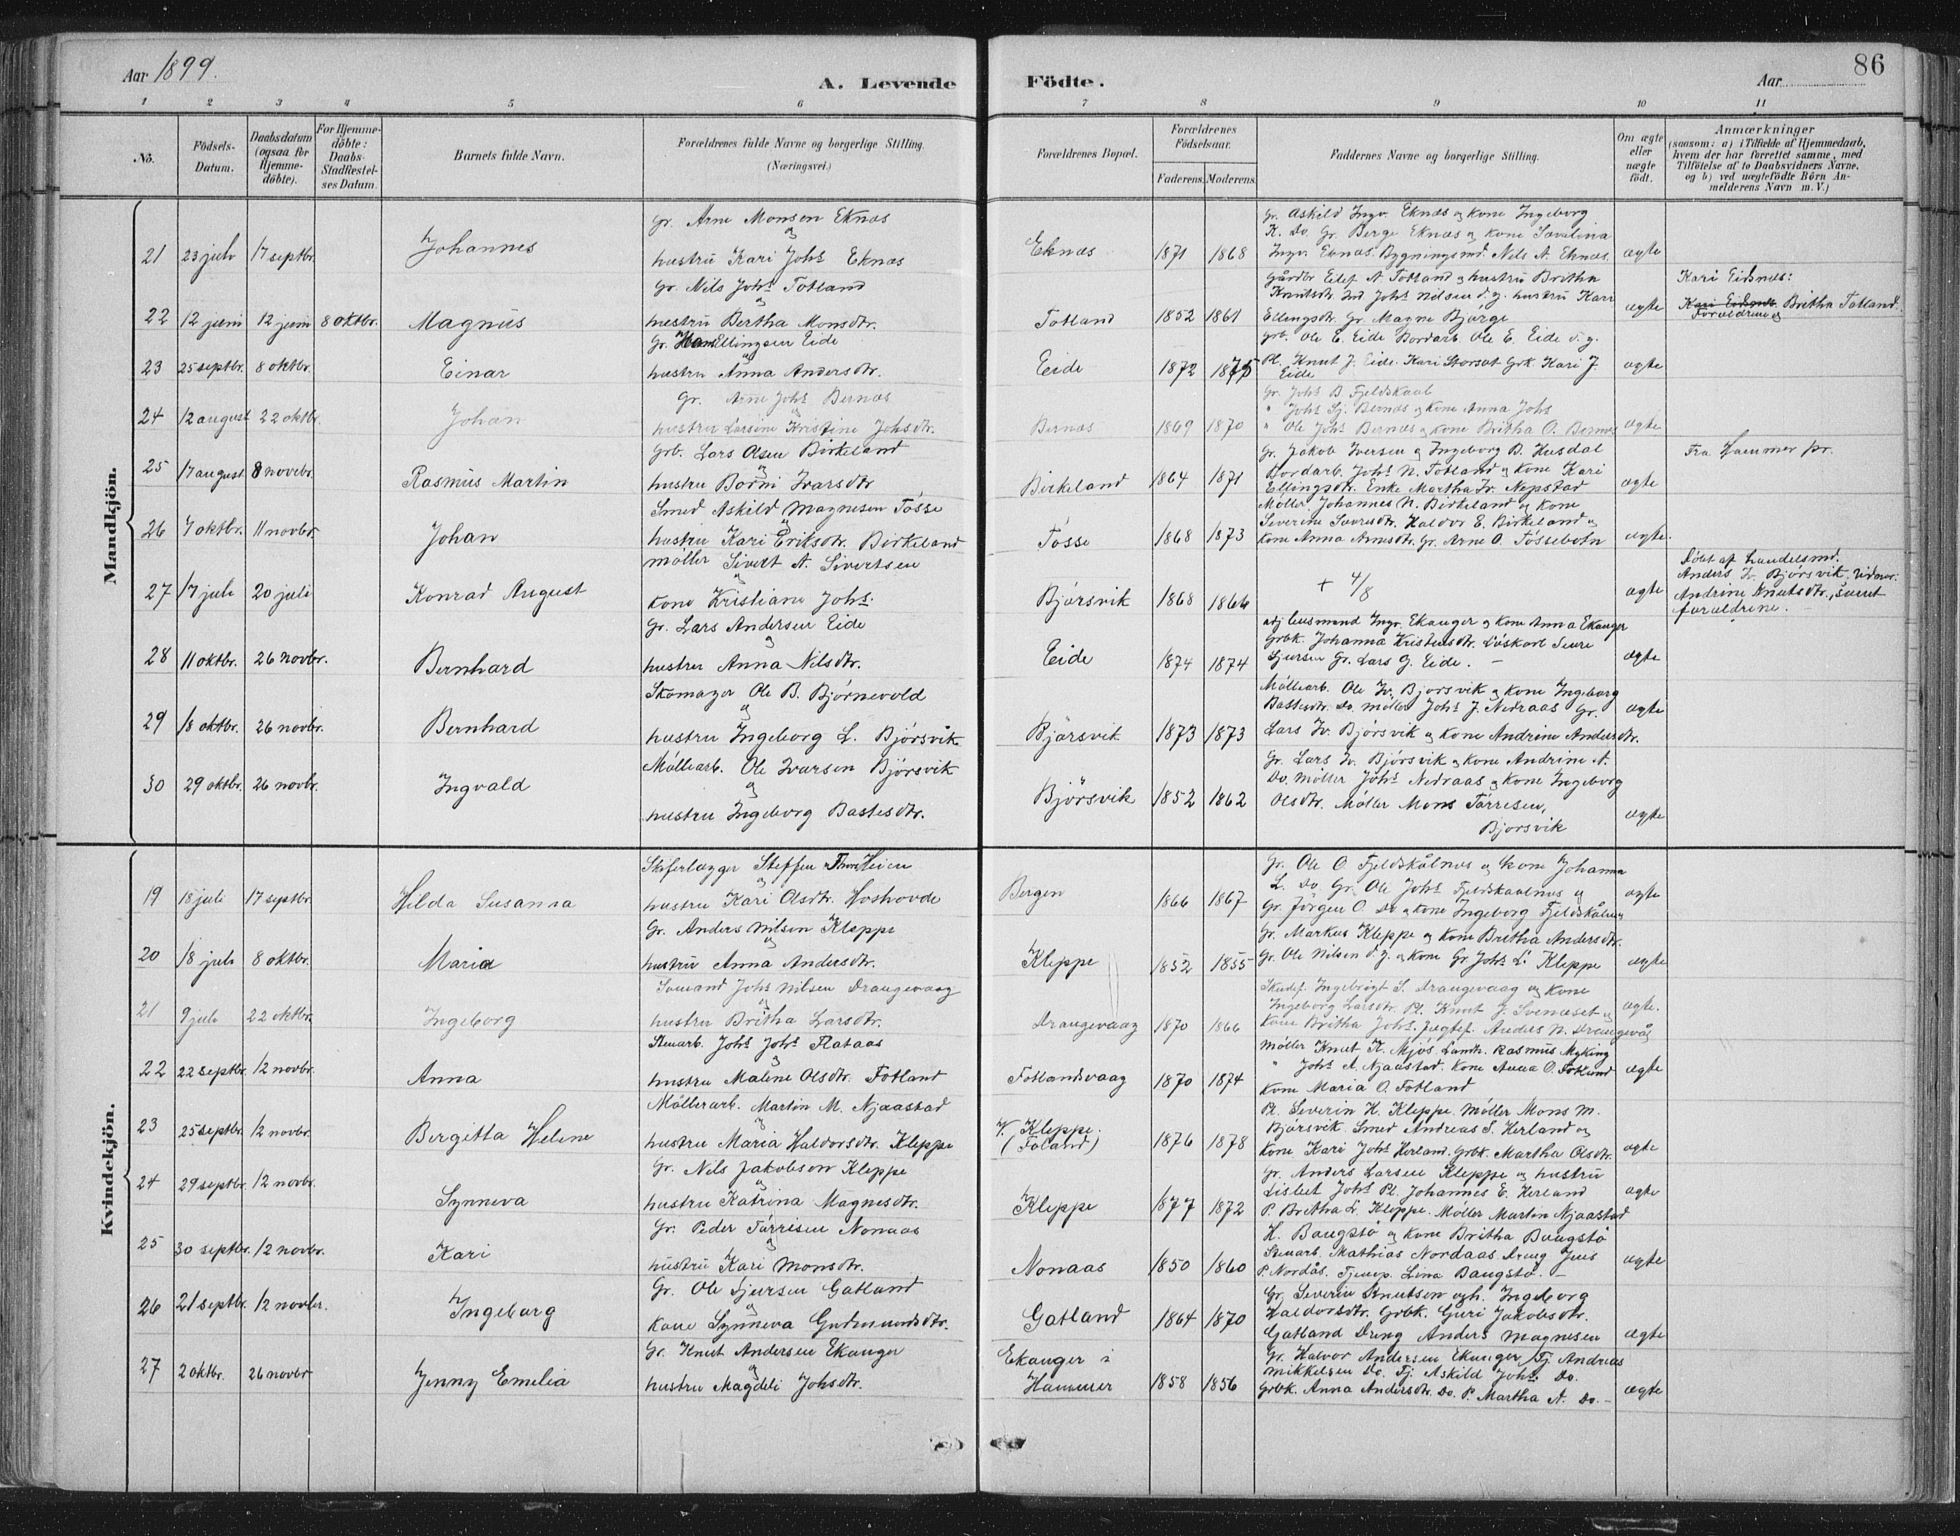 Aar 1899.
A. Levende Födte.
Aar
86
1 2 3 4 5 6 7 8 9 10 11
No.
Födsels-Datum.
Daabsdatum (ogsaa for Hjemme-döbte).
For Hjemme-döbte: Daabs-Stadfæstel-ses Datum.
Barnets fulde Navn.
Forældrenes fulde Navne og borgerlige Stilling. (Næringsvei.)
Forældrenes Bopæl.
Forældrenes Födselsaar.
Faderens. Moderens.
Faddernes Navne og borgerlige Stilling.
Om ægte eller uægte födt.
Anmærkninger
(saasom: a) i Tilfælde af Hjemmedaab,
hvem der har forrettet samme, med
Tilföielse af to Daabsvidners Navne,
og b) ved uægtefödte Börn An-
melderens Navn m. V.)
Mandkjön.
Gr. Arne Monsen Eknæs
og
21 23 juli 17 septbr. Johannes hustru Kari Johs Eknæs
Eknæs 1871 1868
Gr. Askild Ingv. Eknæs og Kone Ingeborg
K. Do Gr. Berge Eknæs og Kone Sevalina
Ingv. Eknæs. Bygningsmd. Nils A. Eknæs.
ægte
Gr. Nils Johs Totland
og
22 12 juni 12 juni 8 oktbr. Magnus hustru Bertha Monsdtr.
Totland 1852 1861
Gårdbr Eilef A. Totland og hustru Britha
Knutsdtr. Ind Johs Nilsen d.y. hustru Kari
Ellingsdtr. Gr. Magne Bjørge
ægte
Kari Eidsnes:
Kari Eidsnes Britha Totland.
Forældrene og
Gr. Hans Ellingsen Eide
og
23 25 septbr. 8 oktbr. Einar hustru Anna Andersdtr.
Eide 1872 1875
grb. Ole E. Eide Bordarb. Ole E. Eide d.y.
Pl. Knut J. Eide. Kari Storset Grk. Kari J.
Eide
ægte
Gr. Arne Johs Bernæs
24 12 august 22 oktbr. Johan hustru Larsine Kristine Johsdtr.
Bernæs 1869 1870
Gr. Johs B Fjeldskaal
" Johs Sj. Bernæs og Kone Anna Johs
" Ole Johs Bernæs og Kone Britha O. Bernæs
ægte
Grb. Lars Olsen Birkeland
og
25 17 august 8 novebr. Rasmus Martin hustru Borni Ivarsdtr
Birkeland 1864 1871
Gr. Jakob Iversen og Ingeborg B. Husdal
Bordarb. Johs N. Totland og Kone Kari
Ellingsdtr. Enke Martha Iv. Nepstad
ægte
Fra Hammer pr.
Smed Askild Magnesen Tösse
og
26 7 oktbr. 11 novbr. Johan hustru Kari Eriksdtr. Birkeland
Tösse 1868 1873
Møller Johannes N. Birkeland og Kone
Severine Sveresdtr. Haldor E. Birkeland og
Kone Anna Arnesdtr. Gr. Arne O. Tössebotn
ægte.
møller Sivert A. Sivertsen
og
27 17 juli 20 juli Konrad August Kone Kristiane Johs.
Bjørsvik 1868 1866
+ 4/8
ægte
Døbt af handelsmd.
Anders Iv. Bjørsvik, vidner:
Andrine Knutsdtr., samt
forældrene. -
Gr. Lars Andersen Eide
og
28 11 oktbr. 26 novbr. Bernhard hustru Anna Nilsdtr.
Eide 1874 1874
Gudmund Ingv. Ekanger og Kone Anna Ekanger
Grbk. Johanna Kristensdtr. Løskarl Sjure
Sjursen Gr. Lars G. Eide. -
ægte
Skomager Ole B. Bjørnevold
og
29 18 oktbr. 26 novbr. Bernhard hustru Ingeborg L. Bjørsvik
Bjørsvik 1873 1873
Møllearb. Ole Iv. Bjorsvik og Kone Ingeborg
Bastesdtr. Do. Møller Johs J. Nedraas Gr.
Lars Iv. Bjørsvik og Kone Andrine Andersdtr.
ægte
Møllearb. Ole Ivarsen Bjørsvik
og
30 29 oktbr. 26 novbr. Ingvald hustru Ingeborg Bastesdtr.
Bjørsvik 1852 1862
Gr. Lars Iv. Bjørsvik og Kone Andrine A.
Do. Møller Johs Nedraas og Kone Ingeborg
Olsdtr. Møller Mons Tørresen,
Bjorsvik
ægte
Kvindekjön.
Skiferlægger Steffen Heien
og
19 18 juli 17 septbr. Hilda Susanna hustru Kari Olsdtr. Hoshovde
Bergen 1866 1867
Gr. Ole O Fjeldskålnes og kone Johanna
L. Do Gr. Ole Johs Fjeldskaalnes og
Gr. Jörgen O. Do og Kone Ingeborg Fjeldskålnes
ægte
Gr. Anders Nilsen Kleppe
og
20 18 juli 8 oktbr. Maria hustru Anna Andersdtr.
Kleppe 1852 1855
Gr. Markus Kleppe og Kone Britha Andersdtr.
Gr. Ole Nilsen d.y. og Kone Gr. Johs L. Kleppe
ægte
Sømand Johs Nilsen Drangevaag
og
21 9 juli 22 oktbr. Ingeborg hustru Britha Larsdtr.
Drangevaag 1870 1866
Skudef. Ingebrigt S. Drangevaag og Kone
Ingeborg Larsdtr. Pl. Knut J. Svenæset og
Kone Britha Johs. Jægtef. Andes N. Drangevåg
ægte.
Stenarb. Johs Johs Flataas
og
22 22 septbr 12 novbr. Anna hustru Malene Olsdtr. Totland
Totlandsvaag 1870 1874
Møller Knut K. Mjös. Landh. Rasmus Myking
" Johs A. Njaastad. Kone Anna O. Totland
Kone Maria O. Totland
ægte
Møllerarb. Martin M. Njaastad
og
23 25 septbr. 12 novbr. Bergitta Helene hustru Maria Haldorsdtr. Kleppe
Y. Kleppe.
(Toland) 1876 1878
Pl. Severin H. Kleppe. Møller Mons M.
Bjørsvik Smed Andreas S. Herland og
Kone Kari Johs Herland. Grbk. Martha Olsdtr.
ægte
Gr. Nils Jakobson Kleppe
og
24 29 septbr. 12 novbr. Synneva hustru Katrina Magnesdtr.
Kleppe 1877 1872
Gr. Anders Larsen Kleppe og hustru
Lisbet Johs Pl. Johannes E. Herland
P. Britha L. Kleppe. Møller Martin Njaastad
ægte
Gr. Peder Tørrisen Nonaas
og
25 30 septbr. 12 novbr. Kari hustru Kari Monsdtr.
Nonaas 1850 1860
H. Baugstø og Kone Britha Baugstø
Stenarb. Mathias Nordaas Dreng Jens
P. Nordås. Tjenep. Lina Baugstø. -
ægte
Gr. Ole Sjursen Gatland
og
26 21 septbr. 12 novbr. Ingeborg Kone Synneva Gudmundsdtr.
Gatland 1864 1870
Gr. Severin Knutson og h. Ingeborg
Haldorsdtr. Grbk. Guri Jakobsdtr.
Gatland Dreng Anders Magnesen
ægte
Gr. Knut Andersen Ekanger
og
27 2 oktbr. 26 novbr Jenny Emelia hustru Magdeli Johsdtr.
Ekanger i
Hammer 1858 1856
Gr. Halvor Andersen Ekanger Tj. Andreas
Mikkelsen Do. Tj. Askild Johs Do.
Grbk. Anna Andersdtr. Do. P. Martha A. Do. -
ægte